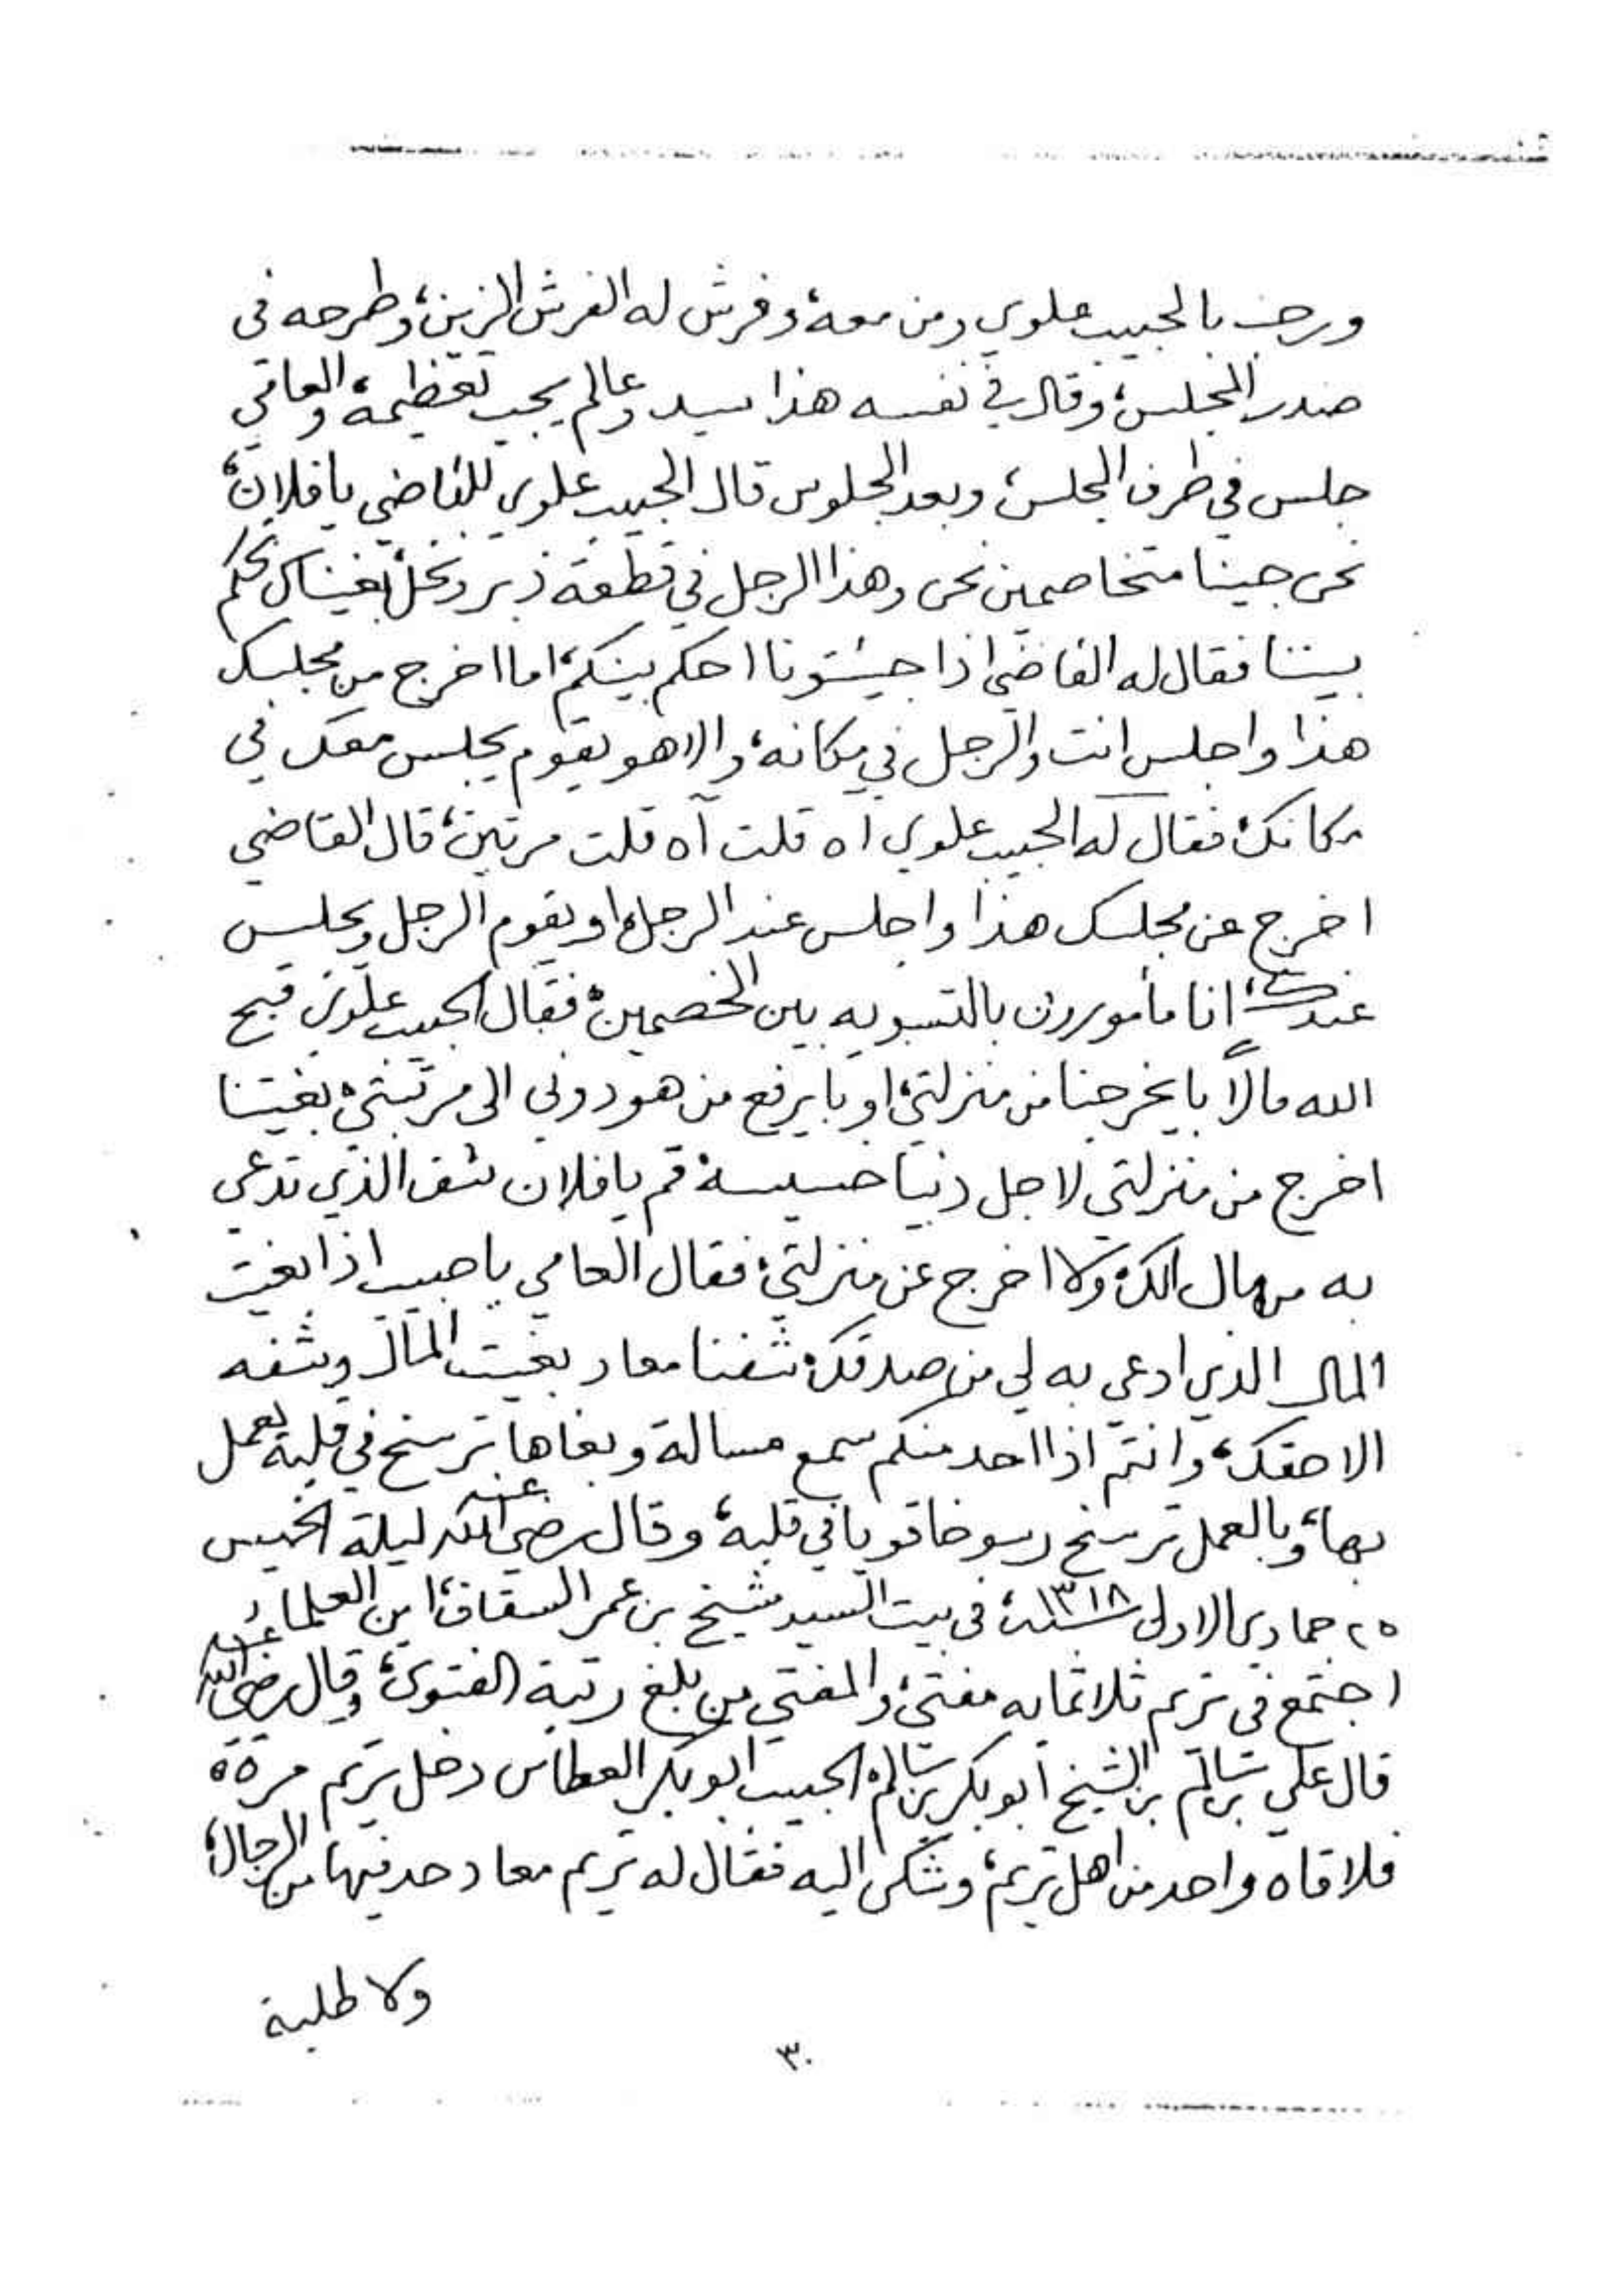 ورحب بالحبيب علوي ومن معه، وفرش له الفرش الزين، وطرحه في
صدر المجلس، وقال في نفسه هذا سيد وعالم يجب تعظيمه، والعامي
جلس في طرف المجلس، وبعد الجلوس قال الحبيب علوي للقاضي يا فلان،
نحن جينا متخاصمين نحن وهذا الرجل في قطعة ذبر ونخل، بغيناك تحكم
بيننا فقال له القاضي اذا جيئتونا احكم بينكم، اما اخرج من مجلسك
هذا واجلس انت والرجل في مكانه، والا هو يقوم يجلس معك في
مكانك، فقال له الحبيب علوي اه قلت آه قلت مرتين، قال القاضي
اخرج عن مجلسك هذا واجلس عند الرجل، او يقوم الرجل ويجلس
عندك، انا مأمورون بالتسويه بين الخصمين، فقال الحبيب علوي قبح
الله مالاً بايخرجنا من منزلتي، او بايرفع من هو دوني الى مرتبتي، بغيتنا
اخرج من منزلتي لاجل دنيا خسيسة، قم يا فلان شف الذي تدعي
به من مال لك، ولا اخرج عن منزلتي، فقال العامي يا حبيب اذا بغيت
المال الذي ادعي به لي من صدقك، شفنا معاد بغيت المال وشفه
الا حقك، وانتم اذا احد منكم سمع مسالة وبغاها ترسخ في قلبه يعمل
بها، وبالعمل ترسخ رسوخا قويا في قلبه، وقال رضي الله عنه ليلة الخميس
٢٥ جمادى الاولى سنة ١٣١٨، في بيت السيد شيخ بن عمر السقاف، اين العلماء،
اجتمع في تريم ثلاثمايه مفتي، والمفتي من بلغ رتبة الفتوى، وقال رضي الله عنه
قال علي بن سالم بن الشيخ أبو بكر بن سالم، الحبيب ابو بكر العطاس دخل تريم مرة،
فلاقاه واحد من اهل تريم، وشكى اليه فقال له تريم معاد حد فيها من الرجال،
ولا طلبة
٣٠